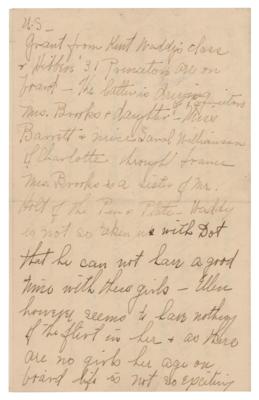 U.S—
Grant from Kent Waddy's class
& Hibben '31 Princeton are on
board — The latter is driving
Mrs. Brooks & daughter — Miss
Barrett & niece Sarah Williamson
of Charlotte through France
Mrs. Brooks is a sister of Mr.
Holt of the Pen & Plate — Waddy
is not so taken up with Dot
that he can not have a good
time with these girls — Ellen
however seems to have nothing
of the flirt in her & as there
are no girls her age on
board life is not so exciting